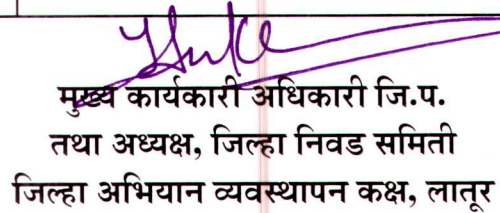 मुख्य कार्यकारी अधिकारी जि.प.
तथा अध्यक्ष, जिल्हा निवड समिती
जिल्हा अभियान व्यवस्थापन कक्ष, लातूर